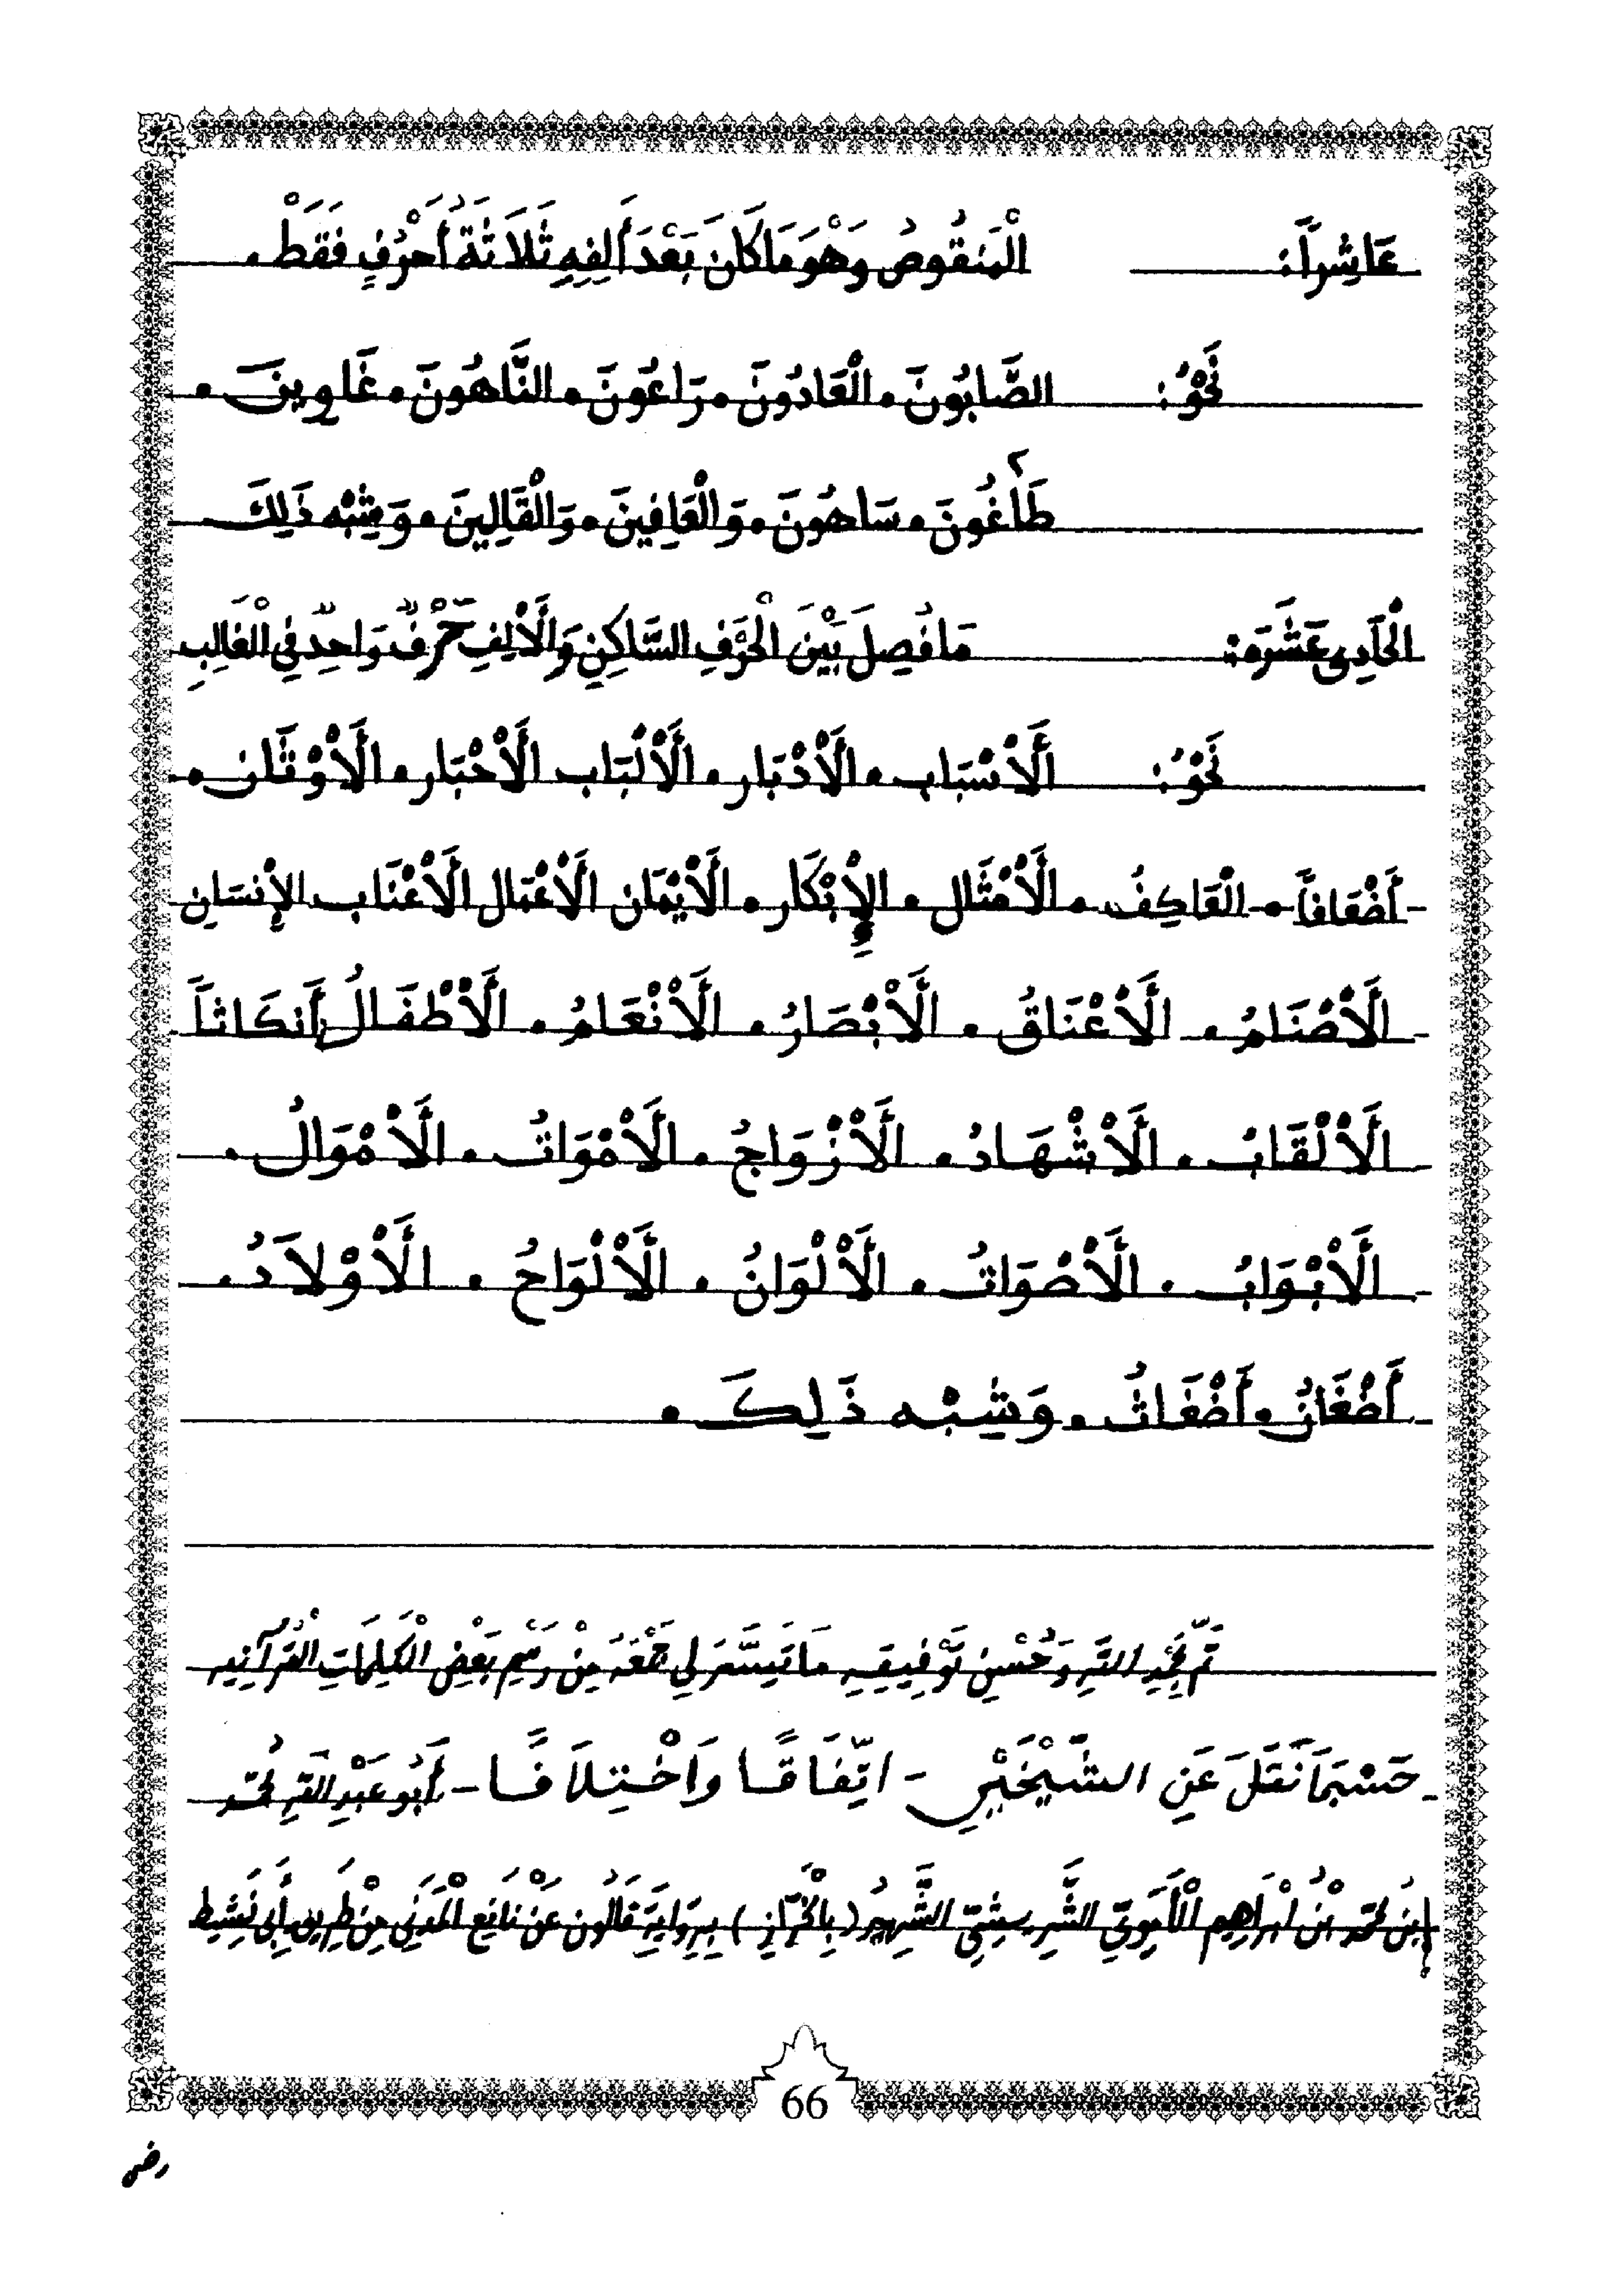 عَاشِراً: الْمَنقُوصُ وَهْوَ مَا كَانَ بَعْدَ أَلِفِهِ ثَلَاثَةُ أَحْرُفٍ فَقَطْ.
نَحْوُ: الصَّابُونَ. الْعَادُونَ. رَاعُونَ. النَّاهُونَ. غَاوِينَ.
طَاغُونَ. سَاهُونَ. وَالْعَافِينَ. وَالْقَالِينَ. وَشِبْه ذَلِكَ
الْحَادِي عَشَرَه: مَا فُصِلَ بَيْنَ الْحَرْفِ السَّاكِنِ وَالْأَلِفِ حَرْفٌ وَاحِدٌ فِي الْغَالِبِ
نَحْوُ: الْأَسْبَاب. الْأَدْبَار. الْأَلْبَاب الْأَحْبَار. الْأَوْثَان.
أَضْعَافاً. الْعَاكِفُ. الْأَمْثَال. الْإِبْكَار. الْأَيْمَان الْأَعْمَال الْأَعْنَاب الإِنسَان
الْأَصْنَامُ. الْأَعْنَاقُ. الْأَبْصَارُ. الْأَنْعَامُ. الْأَطْفَالُ أَنكَاثاً
الْأَلْقَابُ. الْأَشْهَادُ. الْأَزْوَاجُ. الْأَمْوَاتُ. الْأَمْوَالُ.
الْأَبْوَابُ. الْأَصْوَاتُ. الْأَلْوَانُ. الْأَلْوَاحُ. الْأَوْلَادُ.
أَضْغَانُ. أَضْغَاثُ. وَشِبْه ذَلِكَ.
تَمَّ بِحَمْدِ اللَّهِ وَحُسْنِ تَوْفِيقِهِ مَا تَيَسَّرَ لِي جَمْعَهُ مِنْ رَسْمِ بَعْضِ الْكَلِمَاتِ الْقُرْآنِيه
حَسْبَمَا نَقَلَ عَنِ الشَّيْخَيْنِ - اتِّفَاقًا وَاخْتِلَافًا - أَبُو عَبْدِ اللَّهِ مُحَمَّد
ابنُ مُحَمَّد بْنُ ابْرَاهِيم الْأُمَوِيِّ الشَّرِيشِيِّ الشَّهِيرُ (بِالْخَرَّازِ) بِرِوَايَةِ قَالُون عَنْ نَافِعِ الْمَدَنِي مِنْ طَرِيقِ أَبِي نَشِيط
66
رضى